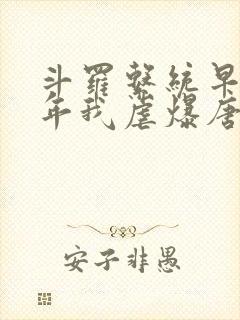 斗罗系统早
年我虐爆唐
安子非愚